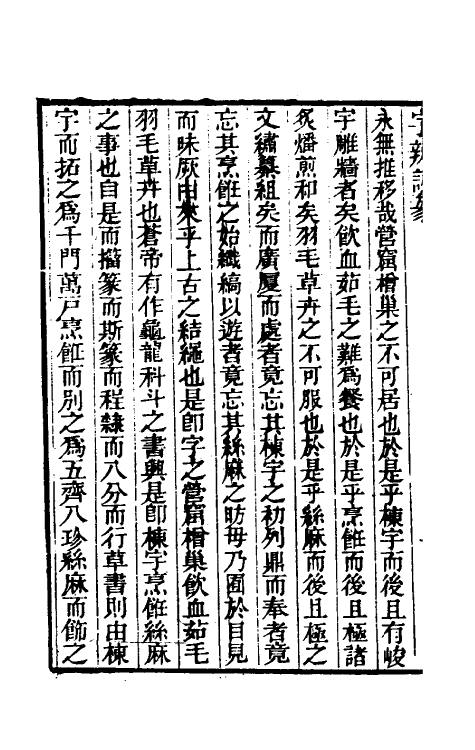 永無推移哉營窟橧巢之不可居也於是乎棟宇而後且有峻
宇雕牆者矣飮血茹毛之難爲餐也於是乎烹飪而後且極諸
炙燔煎和矣羽毛草卉之不可服也於是乎絲麻而後且極之
文繡纂組矣而廣厦而處者竟忘其棟宇之初列鼎而奉者竟
忘其烹飪之始纖縞以遊者竟忘其絲麻之昉毋乃囿於目見
而昧厥由來乎上古之結繩也是卽字之營窟橧巢飮血茹毛
羽毛草卉也蒼帝有作龜龍科斗之書興是卽棟宇烹飪絲麻
之事也自是而籀篆而斯篆而程隸而八分而行草書則由棟
宇而拓之爲千門萬戶烹飪而別之爲五齊八珍絲麻而飾之